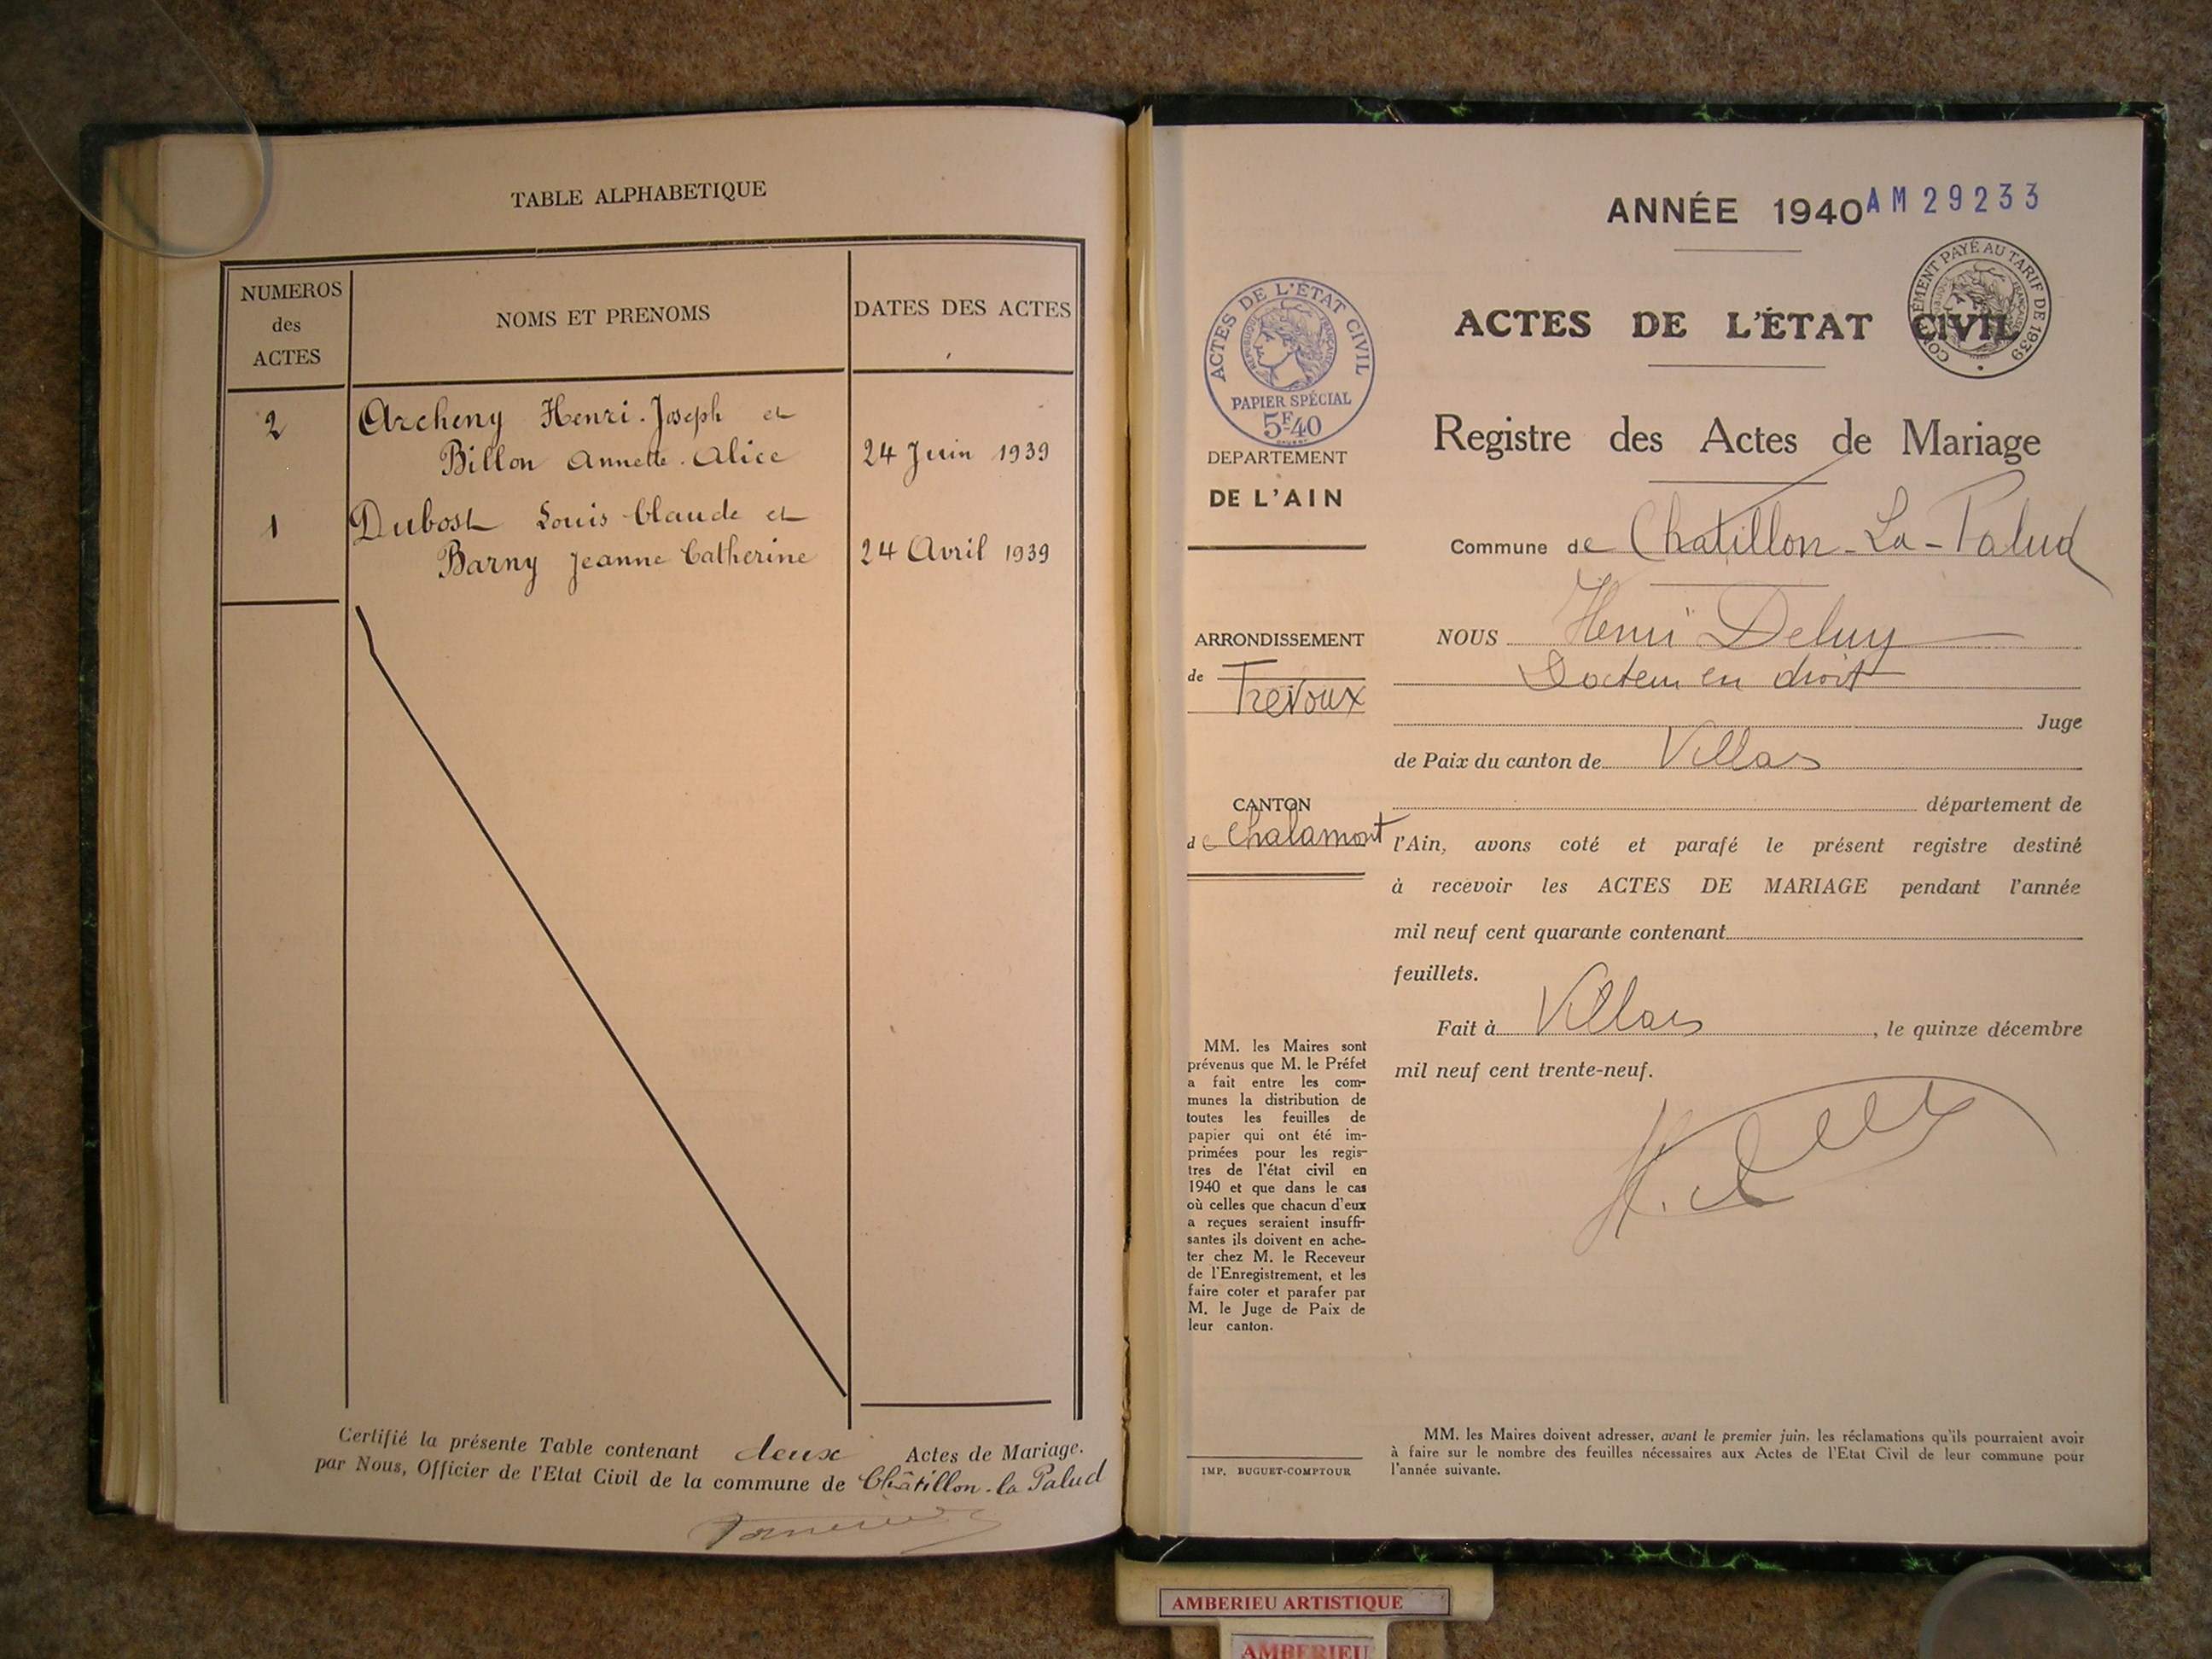 TABLE ALPHABETIQUE
NUMEROS
des
ACTES
NOMS ET PRENOMS
DATES DES ACTES
2
Archeny Henri-Joseph et
Billon Annette-Alice
24 Juin 1939
1
Dubost Louis Claude et
Barny Jeanne Catherine
24 Avril 1939
Certifié la présente Table contenant deux Actes de Mariage.
par Nous, Officier de l'Etat Civil de la commune de Châtillon-la Palud
ANNÉE 1940
AM 29233
ACTES DE L'ÉTAT CIVIL
PAPIER SPÉCIAL
5F40
COMPLÉMENT PAYÉ AU TARIF DE 1939
ACTES DE L'ÉTAT CIVIL
Registre des Actes de Mariage
DEPARTEMENT
DE L'AIN
Commune de Chatillon-La-Palud
ARRONDISSEMENT
de Trevoux
CANTON
de Chalamont
NOUS Henri Deluy
Docteur en droit
Juge
de Paix du canton de Villars
département de
l'Ain, avons coté et parafé le présent registre destiné
à recevoir les ACTES DE MARIAGE pendant l'année
mil neuf cent quarante contenant
feuillets.
Fait à Villars, le quinze décembre
mil neuf cent trente-neuf.
MM. les Maires sont
prévenus que M. le Préfet
a fait entre les com-
munes la distribution de
toutes les feuilles de
papier qui ont été im-
primées pour les regis-
tres de l'état civil en
1940 et que dans le cas
où celles que chacun d'eux
a reçues seraient insuffi-
santes ils doivent en ache-
ter chez M. le Receveur
de l'Enregistrement, et les
faire coter et parafer par
M. le Juge de Paix de
leur canton.
IMP. BUGUET-COMPTOUR
MM. les Maires doivent adresser, avant le premier juin, les réclamations qu'ils pourraient avoir
à faire sur le nombre des feuilles nécessaires aux Actes de l'Etat Civil de leur commune pour
l'année suivante.
AMBERIEU ARTISTIQUE
AMBERIEU